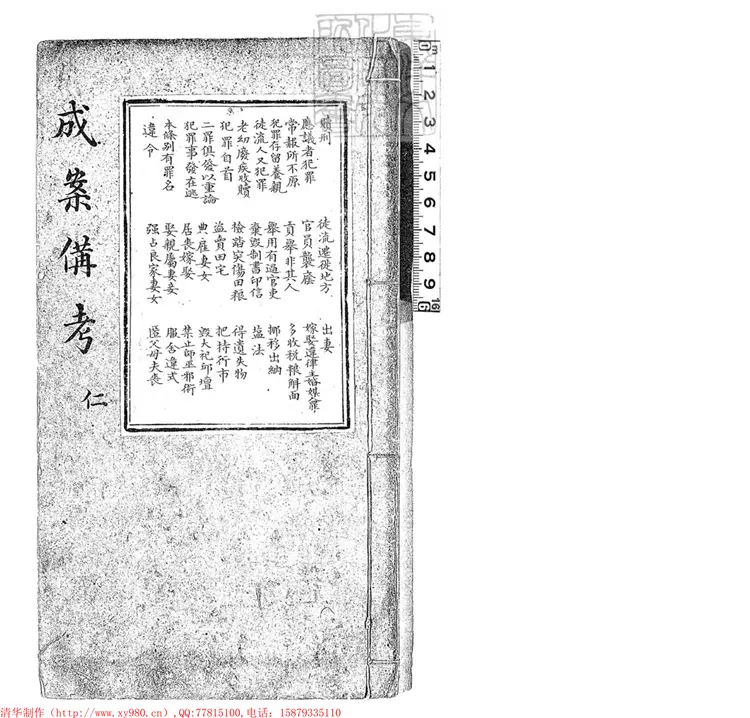 成案備考
仁
贖刑
應議者犯罪
常赦所不原
犯罪存留養親
徒流人又犯罪
老幼廢疾收贖
犯罪自首
二罪俱發以重論
犯罪事發在逃
本條別有罪名
違令
徒流遷徙地方
官員襲廕
貢舉非其人
舉用有過官吏
棄毀制書印信
檢踏災傷田粮
盜賣田宅
典雇妻女
居喪嫁娶
娶親屬妻妾
强占良家妻女
出妻
嫁娶違律主婚媒人罪
多收稅粮斛面
挪移出納
塩法
得遺失物
把持行市
毀大祀邱壇
禁止師巫邪術
服舍違式
匿父母夫喪
cm
0
1
2
3
4
5
6
7
8
9
10
清华制作（http://www.xy980.cn）,QQ:77815100,电话：15879335110